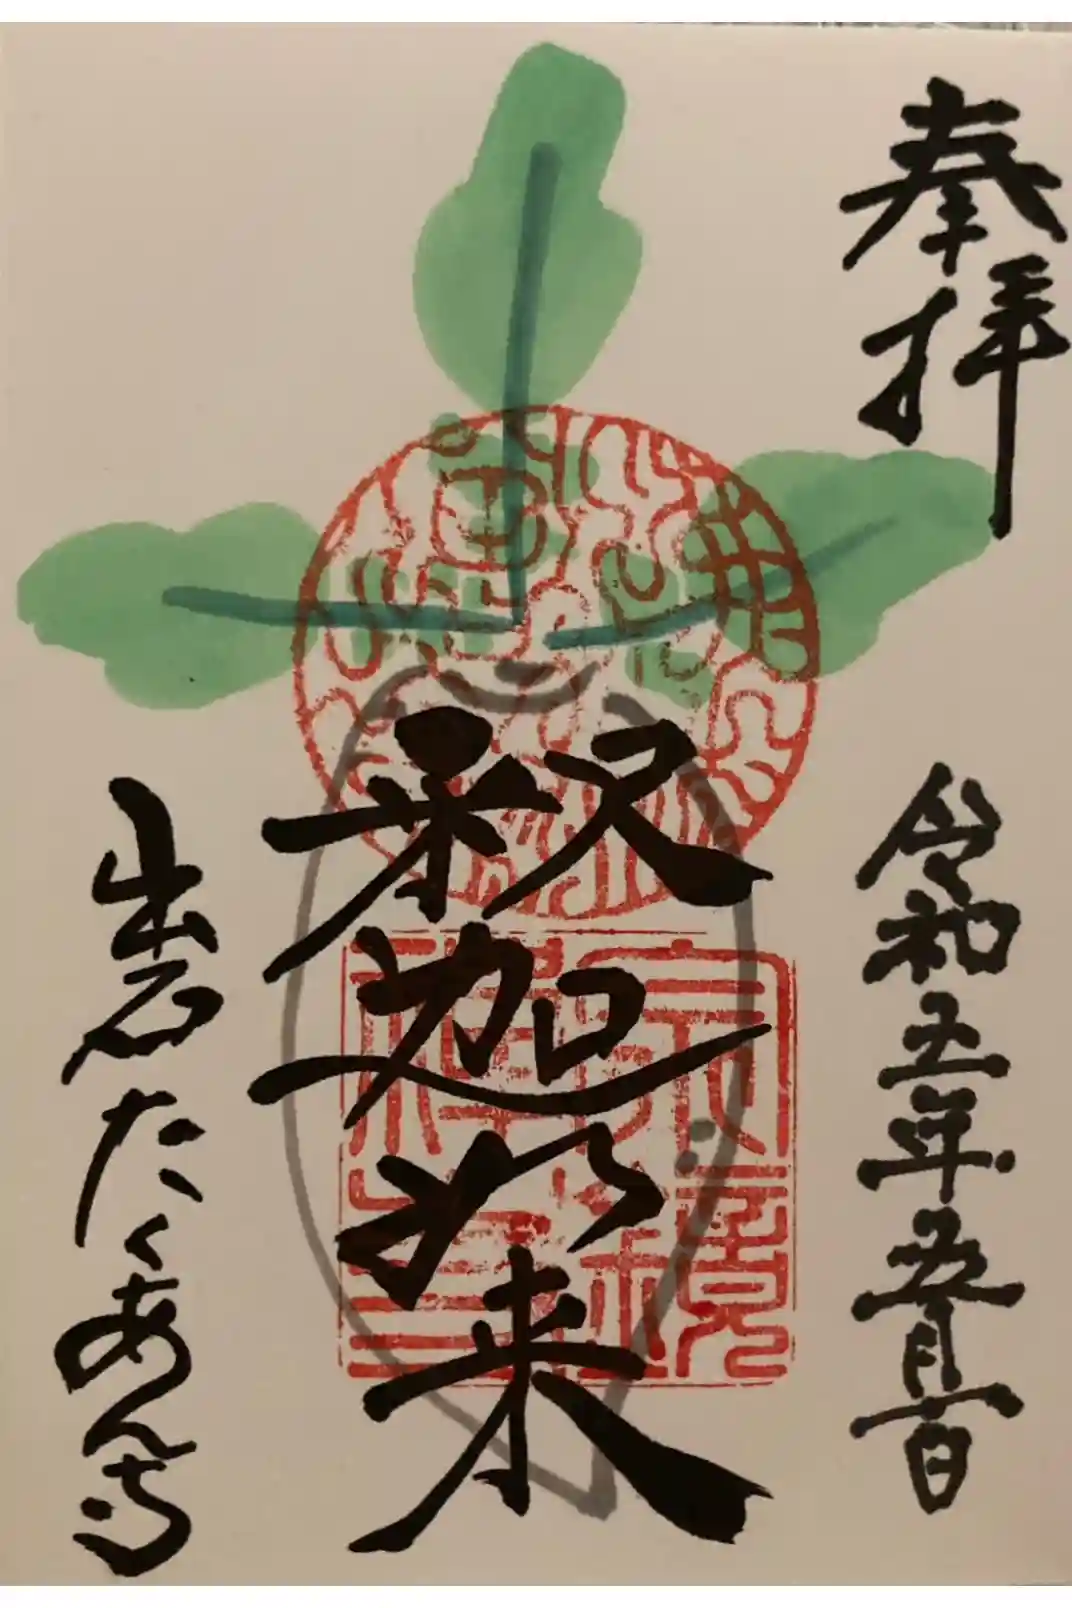 奉拝
令和五年五月一日
釈迦如来
出石たくあん寺